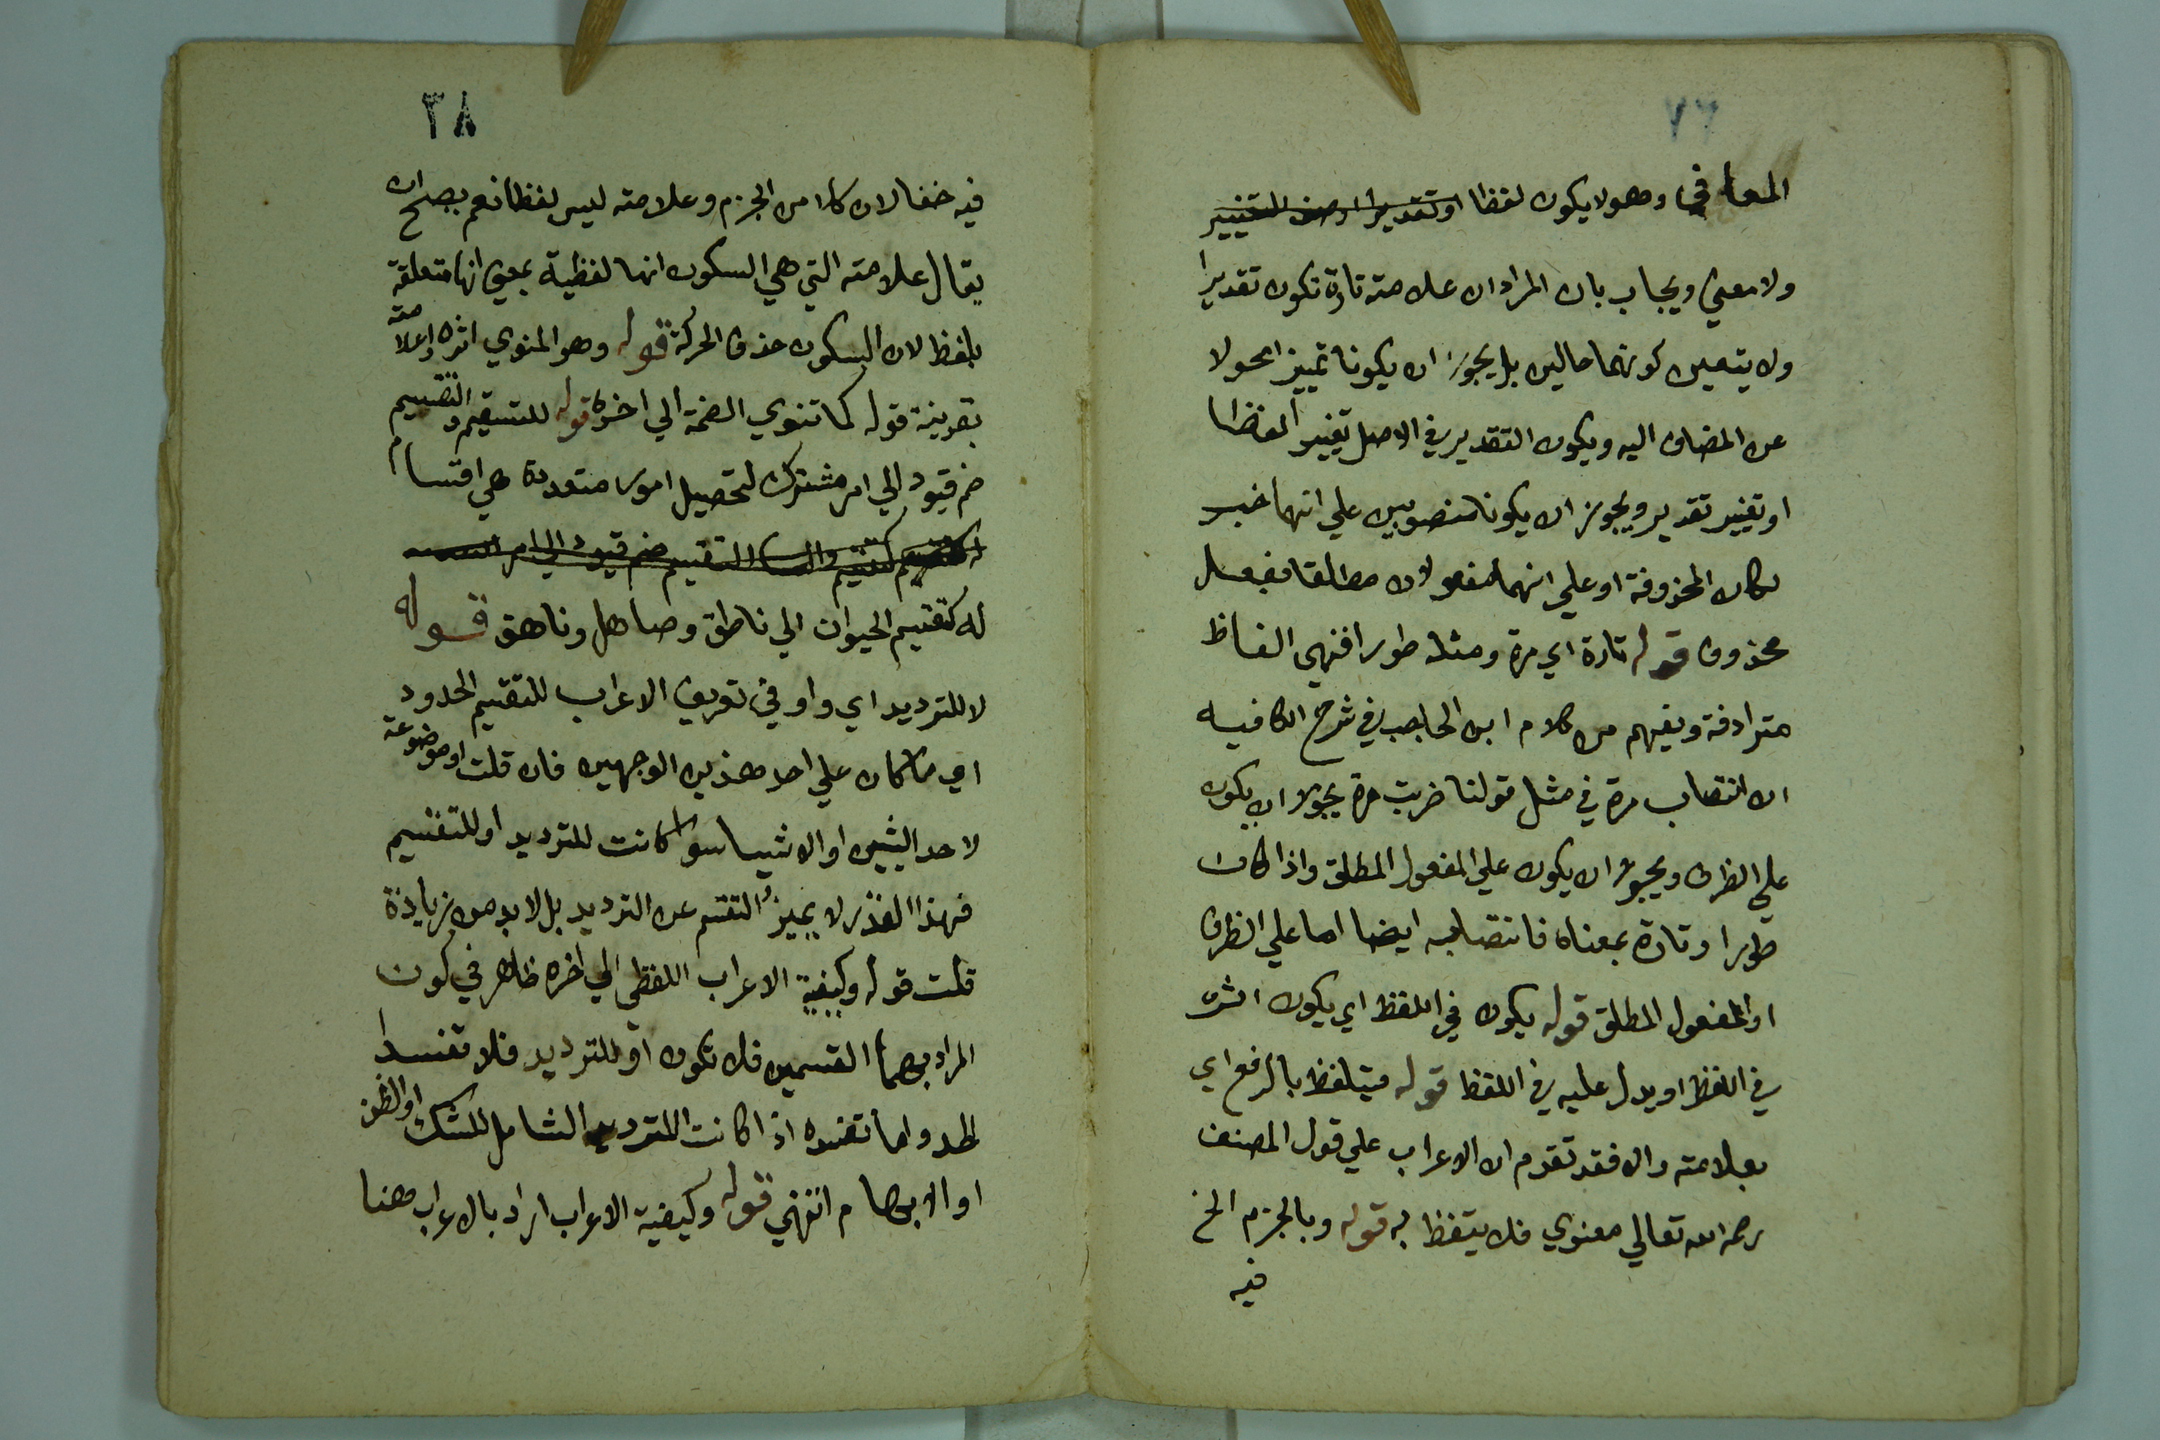 ٧٦
المعاني وهو لا يكون لفظا او تقديرا او صف للتغيير
ولا معني ويجاب بان المراد ان علامته تارة تكون تقديرا
ولا يتعين كونهما حالين بل يجوز ان يكونا تمييزا محولا
عن المضاف اليه ويكون التقدير في الاصل تغيير الفظا
او تغيير تقدير ويجوز ان يكونا منصوبين علي انهما خبر
لكان المحذوفة او علي انهما مفعولان مطلقا بفعل
محذوف قوله تارة اي مرة ومثله طورا فنهي الفاظ
مترادفة ويفهم من كلام ابن الحاجب في شرح الكافيه
ان انتصاب مرة في مثل قولنا ضربت مرة يجوز ان يكون
علي الظرف ويجوز ان يكون علي المفعول المطلق واذا كان
طورا وتارة بمعناه فانتصابه ايضا اما علي الظرف
او المفعول المطلق قوله يكون في اللفظ اي يكون اثره
في اللفظ او يدل عليه في اللفظ قوله فيتلفظ بالرفع اي
بعلامته والا فقد تقدم ان الاعراب علي قول المصنف
رحمه الله تعالي معنوي فلا يتلفظ به قوله وبالجزم الخ
فيه
٣٨
فيه خفا لان كلا من الجزم وعلامته ليس لفظا نعم يصح ان
يقال علامته التي هي السكون انها لفظية بمعني انها متعلقة
بلفظ لان السكون حذف الحركة قوله وهو المنوي اثره وعلامته
بقرينة قوله كما تنوي الضمة الي اخره قوله للتقسيم والتقسيم
ضم قيود الي امر مشترك لتحصيل امور متعددة هي اقسام
ضم قيود الي امر
له كتقسيم الحيوان الي ناطق وصاهل وناهق قوله
لا للترديد اي واو في تعريف الاعراب للتقسيم الحدود
اي ما كان علي احد هذين الوجهين فان قلت او موضوعة
لاحد الشيين او الاشيا سوا كانت للترديد او للتقسيم
فهذا القدر لا يميز التقسم عن الترديد بل لا بد من زيادة
قلت قوله وكيفية الاعراب اللفظي الي اخره ظاهر في كون
المراد بهما القسمين فلا تكون او للترديد فلا تفسد
الحد وانما تفسده اذا كانت للترديد الشامل للشك او الظن
او الابهام انتهي قوله وكيفية الاعراب اراد بالاعراب هنا